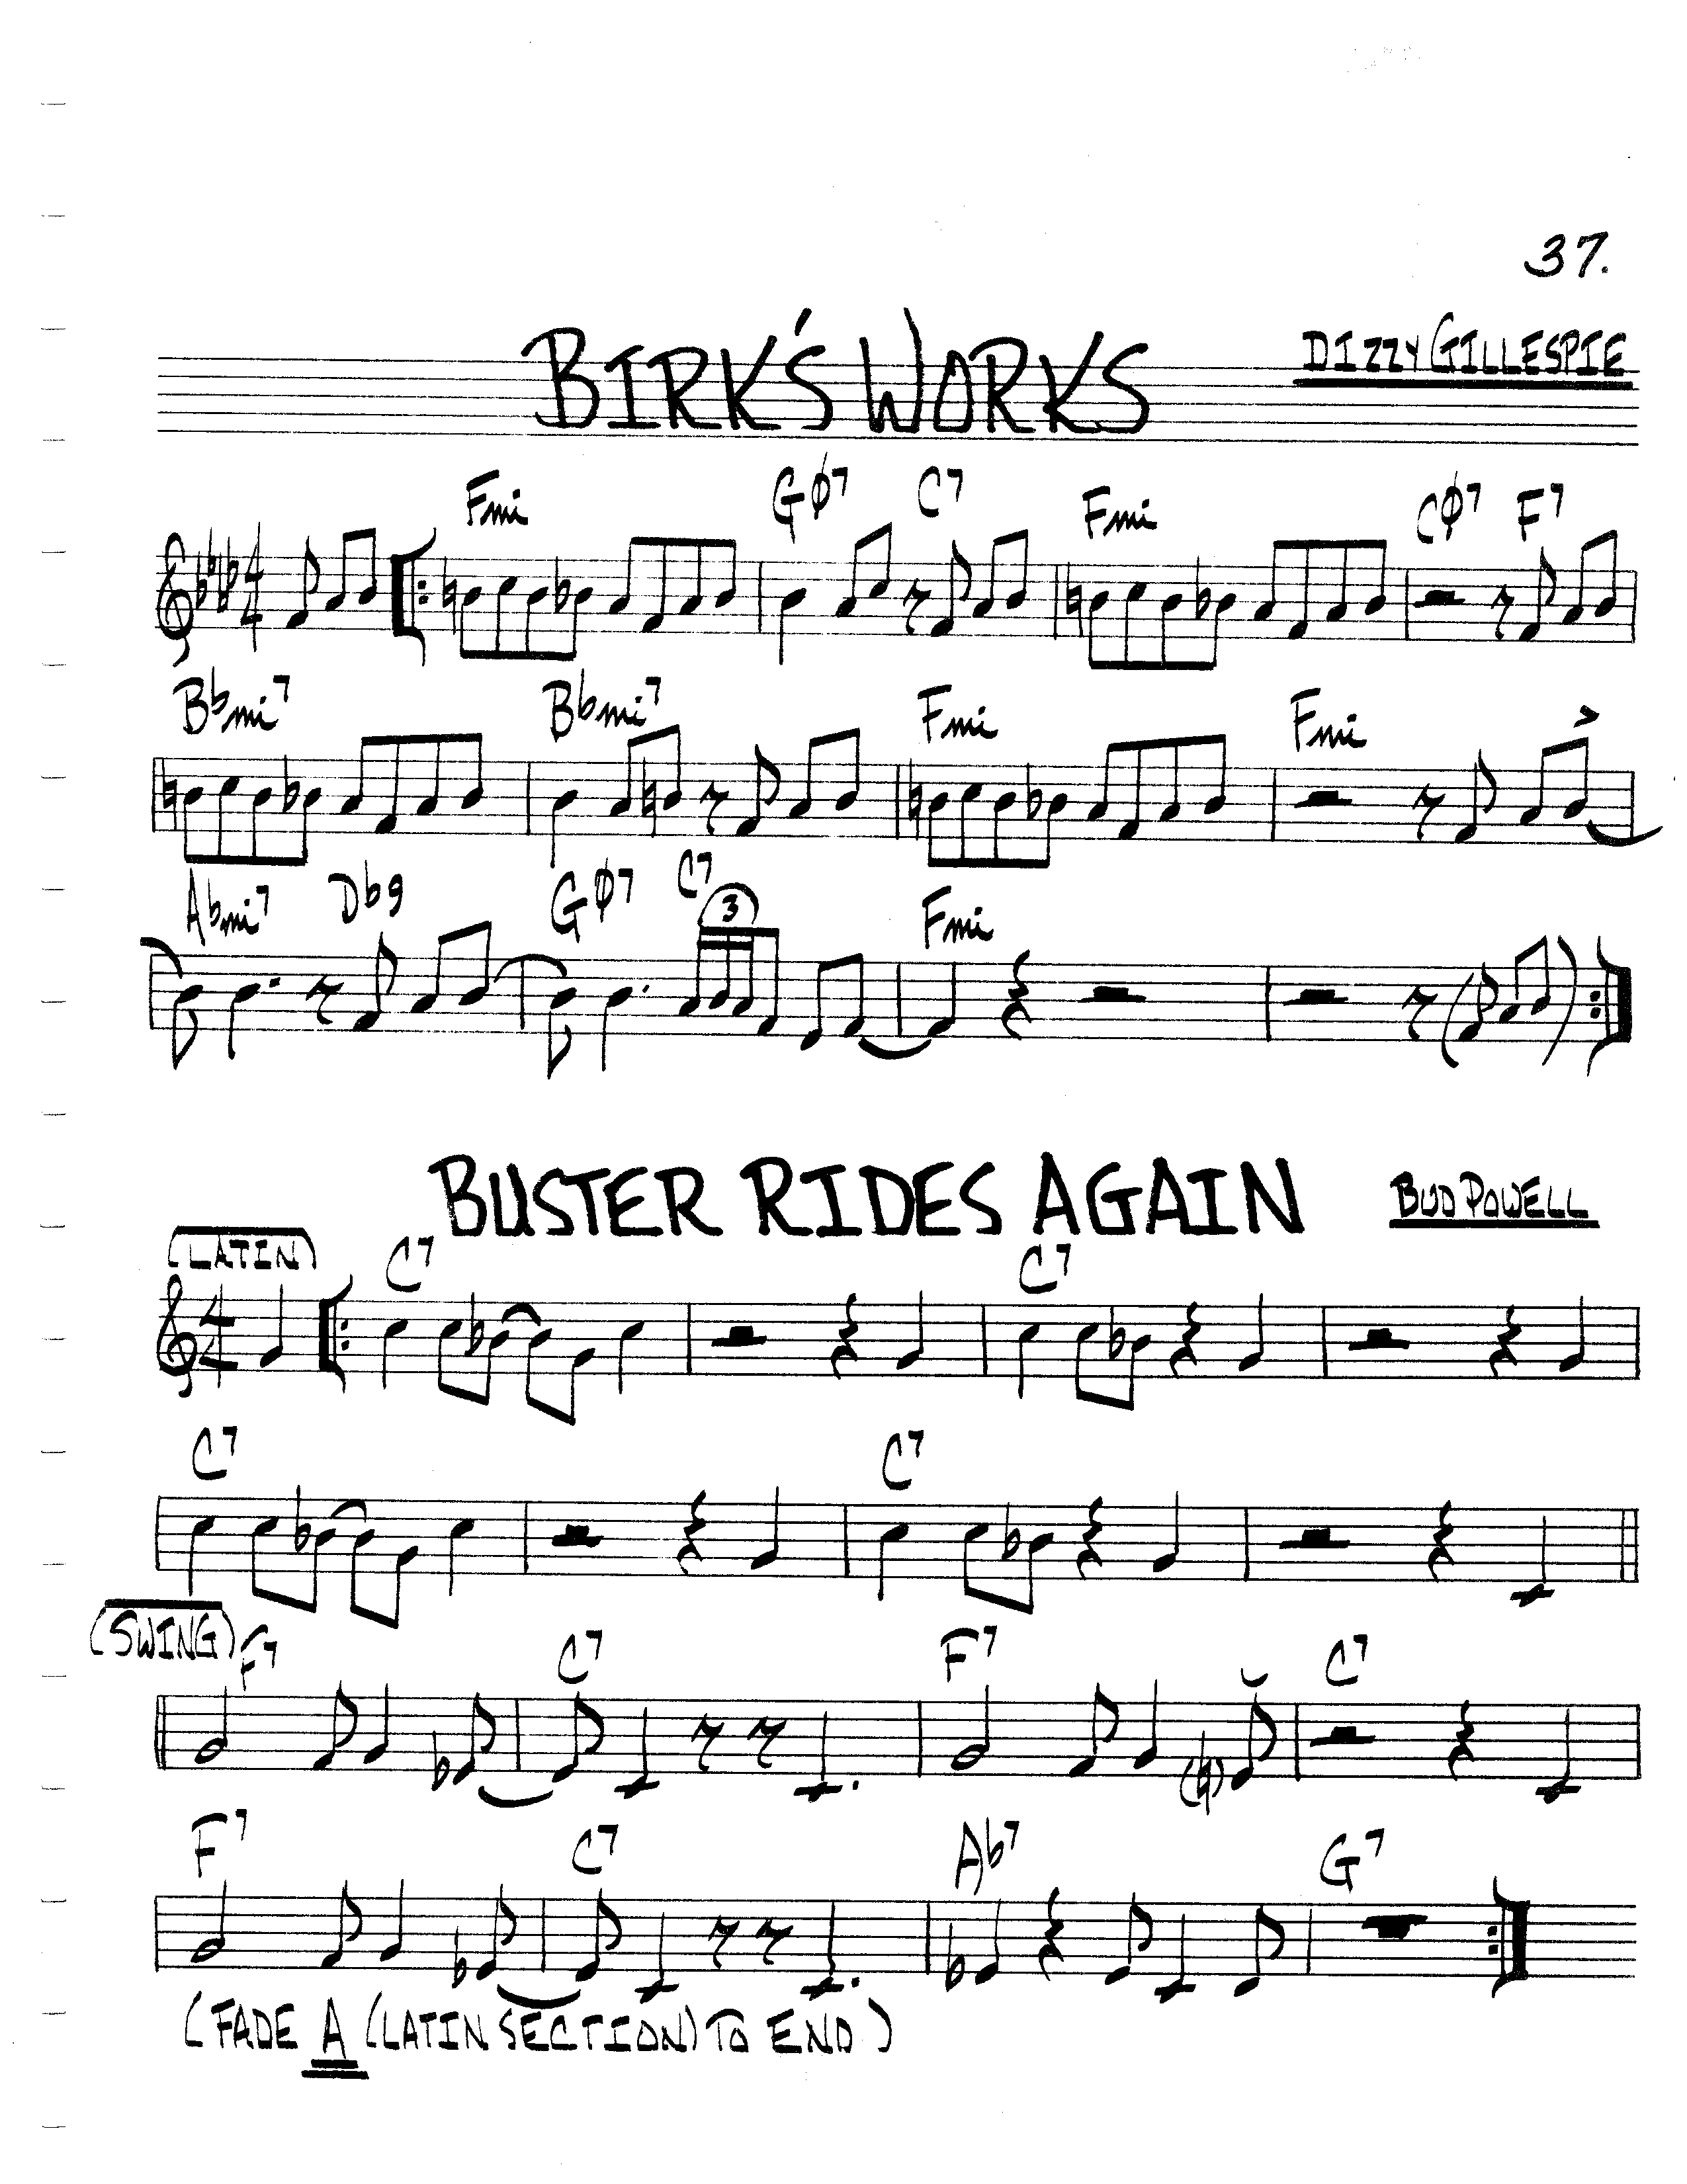 37.
BIRK'S WORKS
DIZZY GILLESPIE
Fmi GØ7 C7 Fmi CØ7 F7
4
4
Bbmi7 Bbmi7 Fmi Fmi
Abmi7 Db9 GØ7 C7 Fmi
3
BUSTER RIDES AGAIN
BUD POWELL
(LATIN)
C7 C7
4
4
C7 C7
(SWING)
F7 C7 F7 C7
F7 C7 Ab7 G7
(FADE A (LATIN SECTION) TO END)